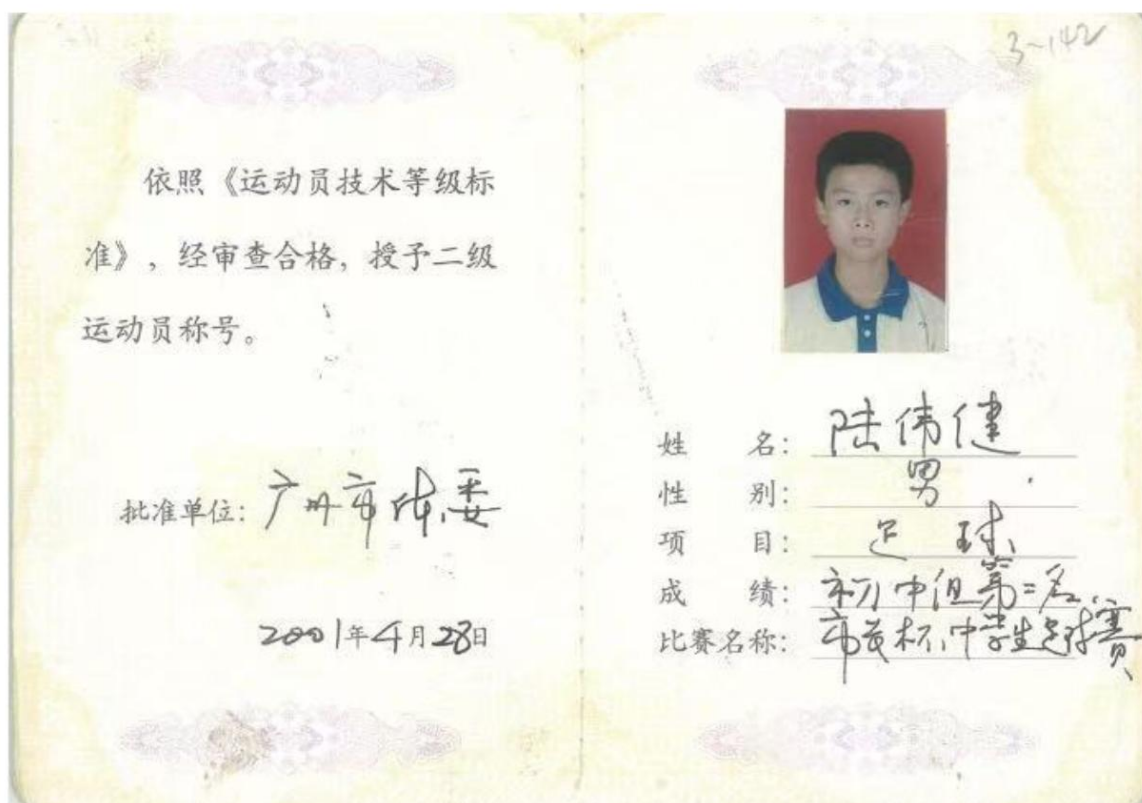 依照《运动员技术等级标
准》,经审查合格,授予二级
运动员称号。
批准单位:广州市体委
2001年4月28日
3-142
姓 名:陆伟健
性 别:男
项 目:足球
成 绩:初中组第二名
比赛名称:市长杯中学生足球赛